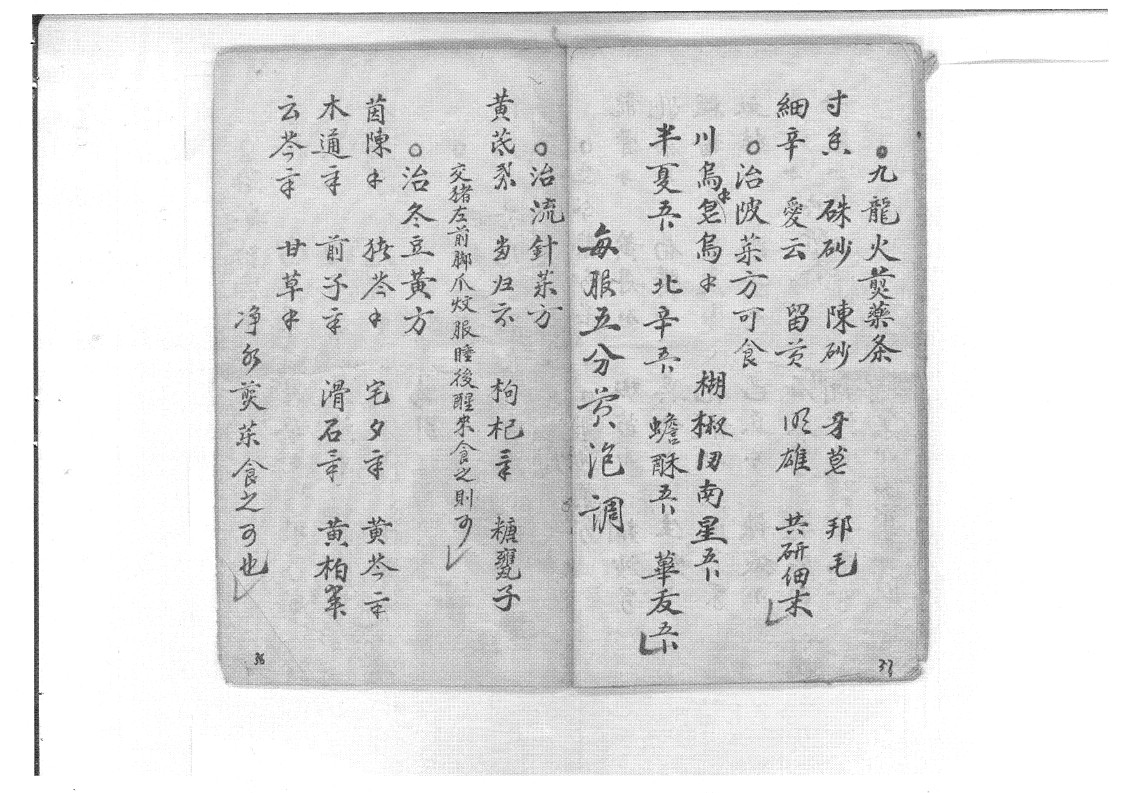 九龍火煲藥条
寸香 硃砂 陳砂 牙茛 邦毛
細辛 愛云 留黃 明雄 共研細末
治陂菜方可食
川烏 皂烏 楜椒 南星
半夏 北辛 蟾酥
每服五分黃泡調
37
治流針菜方
黃芪 当归 枸杞 糖甕子
交猪左前脚爪炆服睡後醒來食之則可
治冬豆黃方
茵陳 猪苓 宅夕 黄芩
木通 前子 滑石 黄柏
云苓 甘草
净水煲菜食之可也
36